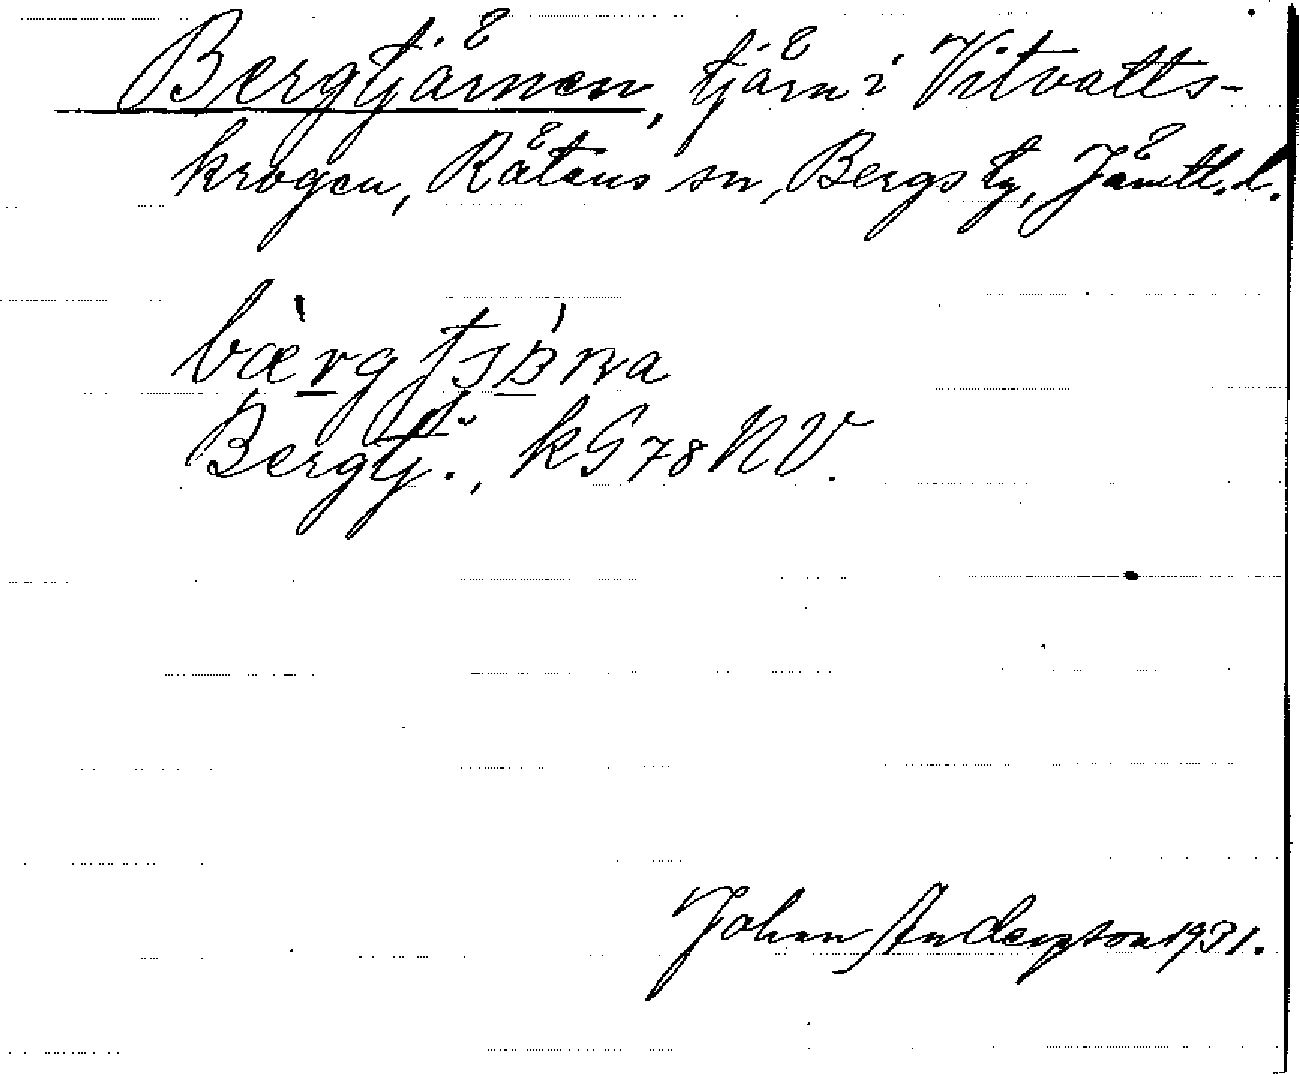 Bergtjärnen, tjärn i Vitvatts-
krogen, Rätans sn, Bergs tg, Jämtl. l.
Bergtj., kG 78 NV.
Johan Anderzton 1931.